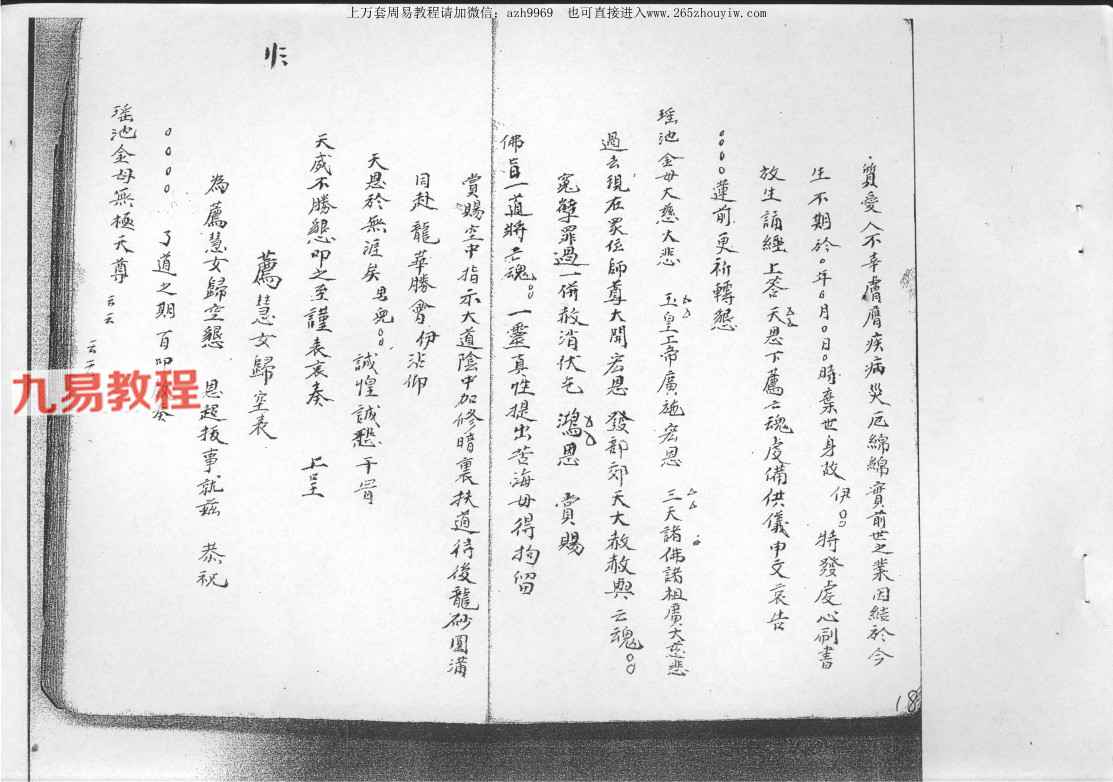 上万套周易教程请加微信：azh9969　也可直接进入www.265zhouyiw.com
質愛人不幸膚膺疾病災厄綿綿實前世之業因結於今
生不期於○年○月○日○時棄世身故　伊○○　特發虔心刷書
放生誦經上答天恩下薦亡魂虔備供儀申文哀告
○○○○蓮前更祈轉懇
瑤池金母大慈大悲　玉皇上帝廣施宏恩　三天諸佛諸祖廣大慈悲
過去現在眾位師尊大開宏恩　發部郊天大赦赦與亡魂○○
冤孽罪過一併赦消伏乞　鴻恩　賞賜
佛旨一道將亡魂○○一靈真性提出苦海毋得拘留
賞賜空中指示大道陰中加修暗裏扶道待後龍砂圓滿
同赴龍華勝會　伊沾仰
天恩於無涯矣　男兔○○　誠惶誠懇　干冒
天威不勝懇叩之至謹表哀奏　上呈
薦慧女歸空表
為薦慧女歸空懇　恩超拔事就茲　恭祝
○○○○　了道之期百叩
瑤池金母無極天尊　云云
云云
18
九易教程